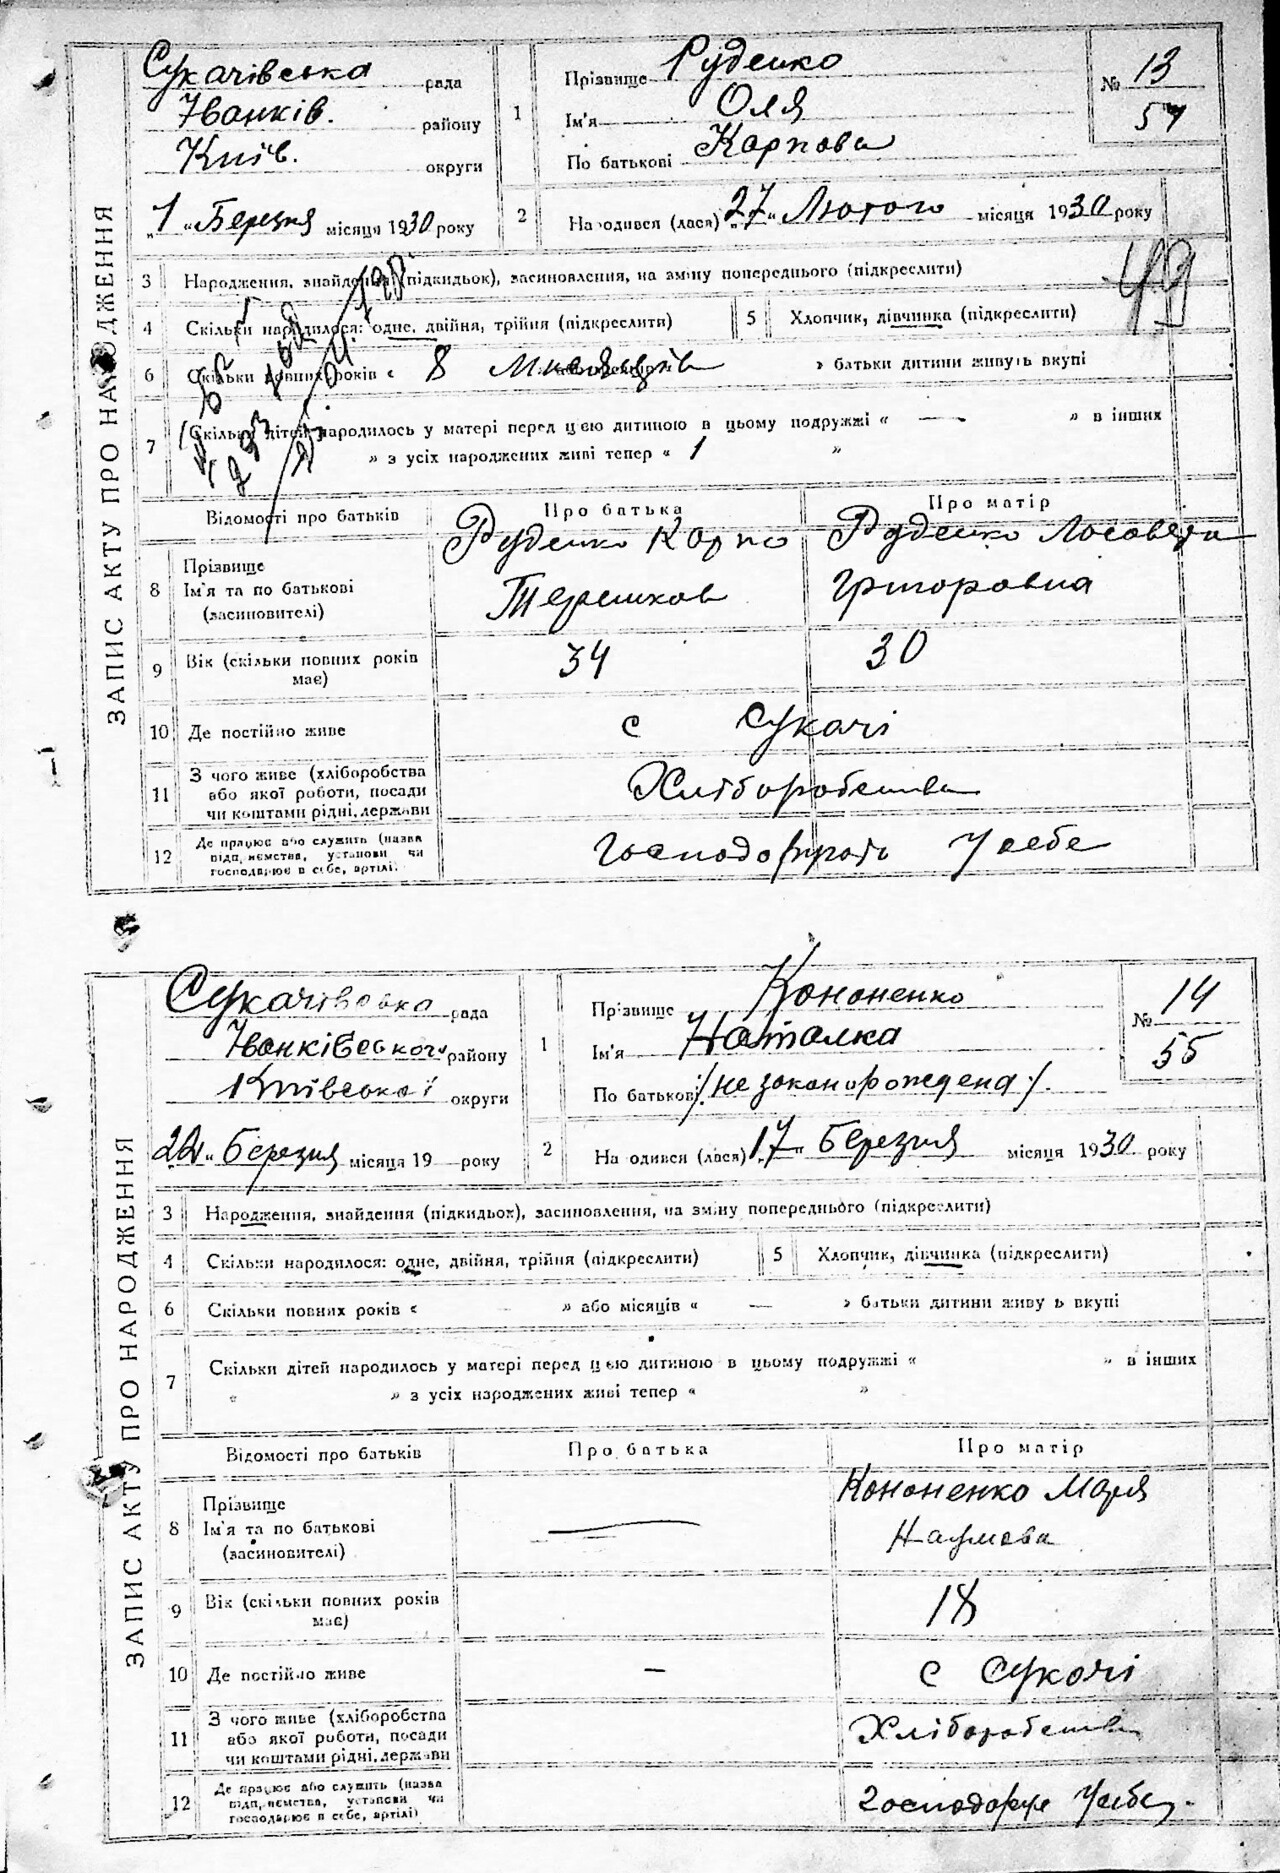 ЗАПИС АКТУ ПРО НАРОДЖЕННЯ
Сукачівська рада
Іванків. району
Київ. округи
"1" Березня місяця 1930 року
1 Прізвище Руденко
Ім'я Оля
По батькові Карпова
№ 13
2 Народився (лася) "27" Лютого місяця 1930 року
49
3 Народження, знайдення (підкидьок), засиновлення, на зміну попереднього (підкреслити)
4 Скільки народилося: одне, двійня, трійня (підкреслити)
5 Хлопчик, дівчинка (підкреслити)
6 Скільки повних років « 8 » батьки дитини живуть вкупі
7 Скільки дітей народилось у матері перед цею дитиною в цьому подружжі « — » в інших
» з усіх народжених живі тепер « 1 »
Відомості про батьків Про батька Про матір
8 Прізвище Ім'я та по батькові (засиновителі)
Руденко Карпо Терешков
Руденко Григоровна
9 Вік (скільки повних років має) 34 30
10 Де постійно живе с Сукачі
11 З чого живе (хліборобства або якої роботи, посади чи коштами рідні, держави Хліборобства
12 Де працює або служить (назва підприємства, установи чи господарює в себе, артілі) У себе
ЗАПИС АКТУ ПРО НАРОДЖЕННЯ
Сукачівська рада
Іванківського району
Київської округи
"22" Березня місяця 19 — року
1 Прізвище Кононенко
Ім'я Наталка
По батькові /незаконорождена/.
№ 14
55
2 Народився (лася) "17" Березня місяця 1930 року
3 Народження, знайдення (підкидьок), засиновлення, на зміну попереднього (підкреслити)
4 Скільки народилося: одне, двійня, трійня (підкреслити)
5 Хлопчик, дівчинка (підкреслити)
6 Скільки повних років « — » або місяців « — » батьки дитини живуть вкупі
7 Скільки дітей народилось у матері перед цею дитиною в цьому подружжі « » в інших
« » з усіх народжених живі тепер « »
Відомості про батьків Про батька Про матір
8 Прізвище Ім'я та по батькові (засиновителі)
—
Кононенко Марія Наумова
9 Вік (скільки повних років має) 18
10 Де постійно живе — с Сукачі
11 З чого живе (хліборобства або якої роботи, посади чи коштами рідні, держави Хліборобства
12 Де працює або служить (назва підприємства, установи чи господарює в себе, артілі) Господарює У себе.